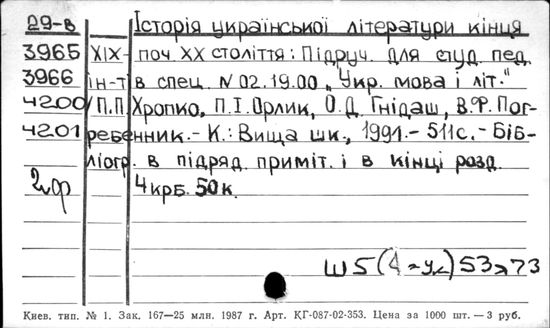 29-в Історія української літератури кінця
3965 XIX - поч XX століття : Підруч. для студ пед.
3966 ін-т в спец. N 02.19.00 „Укр. мова і літ."
4200 / П.П. Хропко, П.І. Орлик, О.Д. Гнідаш, В.Ф. Пог-
4201 ребенник.- К.: Вища шк., 1991.- 511с.- Біб-
ліогр. в підряд. приміт. і в кінці розд.
2 ф 4 крб. 50 к.
Ш5(4=Ук)53я73
Киев. тип. № 1. Зак. 167—25 млн. 1987 г. Арт. КГ-087-02-353. Цена за 1000 шт. — 3 руб.